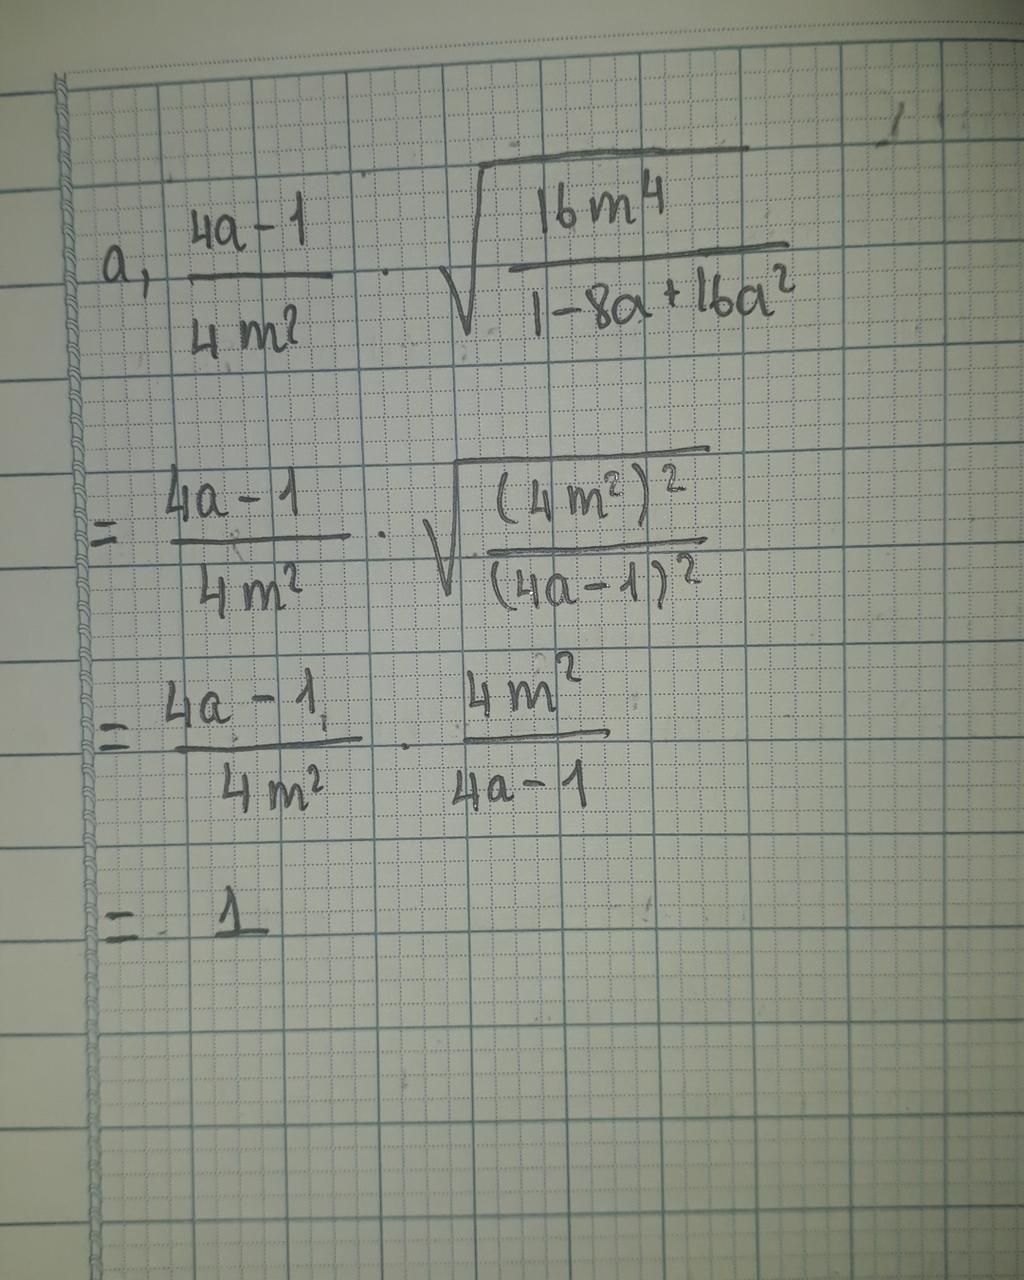 a, \frac{4a-1}{4m^2} \cdot \sqrt{\frac{16m^4}{1-8a+16a^2}}
= \frac{4a-1}{4m^2} \cdot \sqrt{\frac{(4m^2)^2}{(4a-1)^2}}
= \frac{4a-1}{4m^2} \cdot \frac{4m^2}{4a-1}
= 1